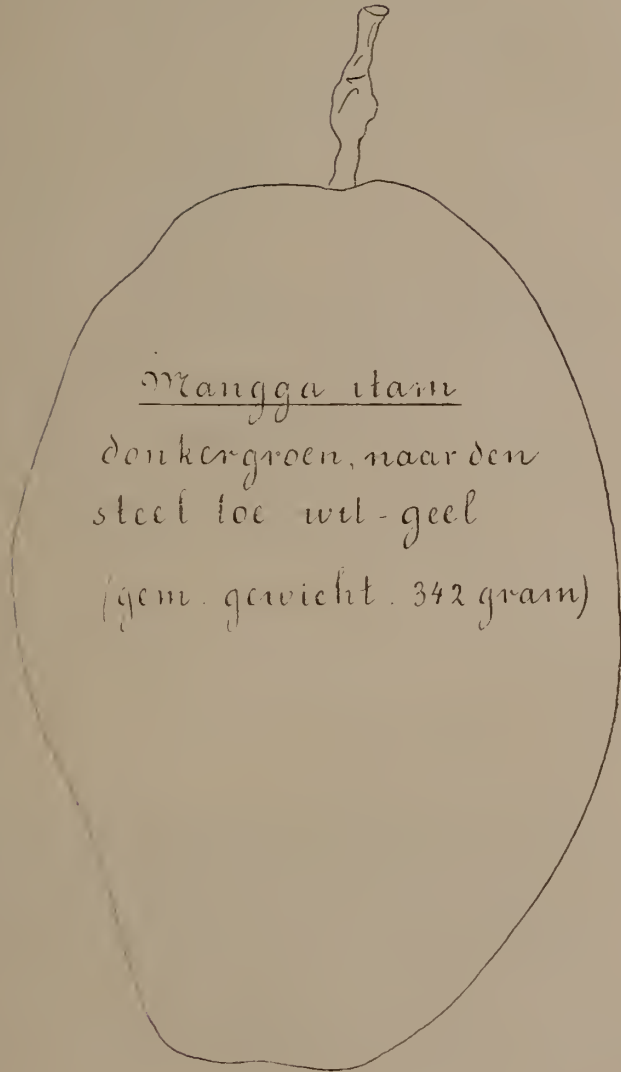 Mangga itam
donkergroen, naar den
steel toe wit-geel
(gem. gewicht. 342 gram)